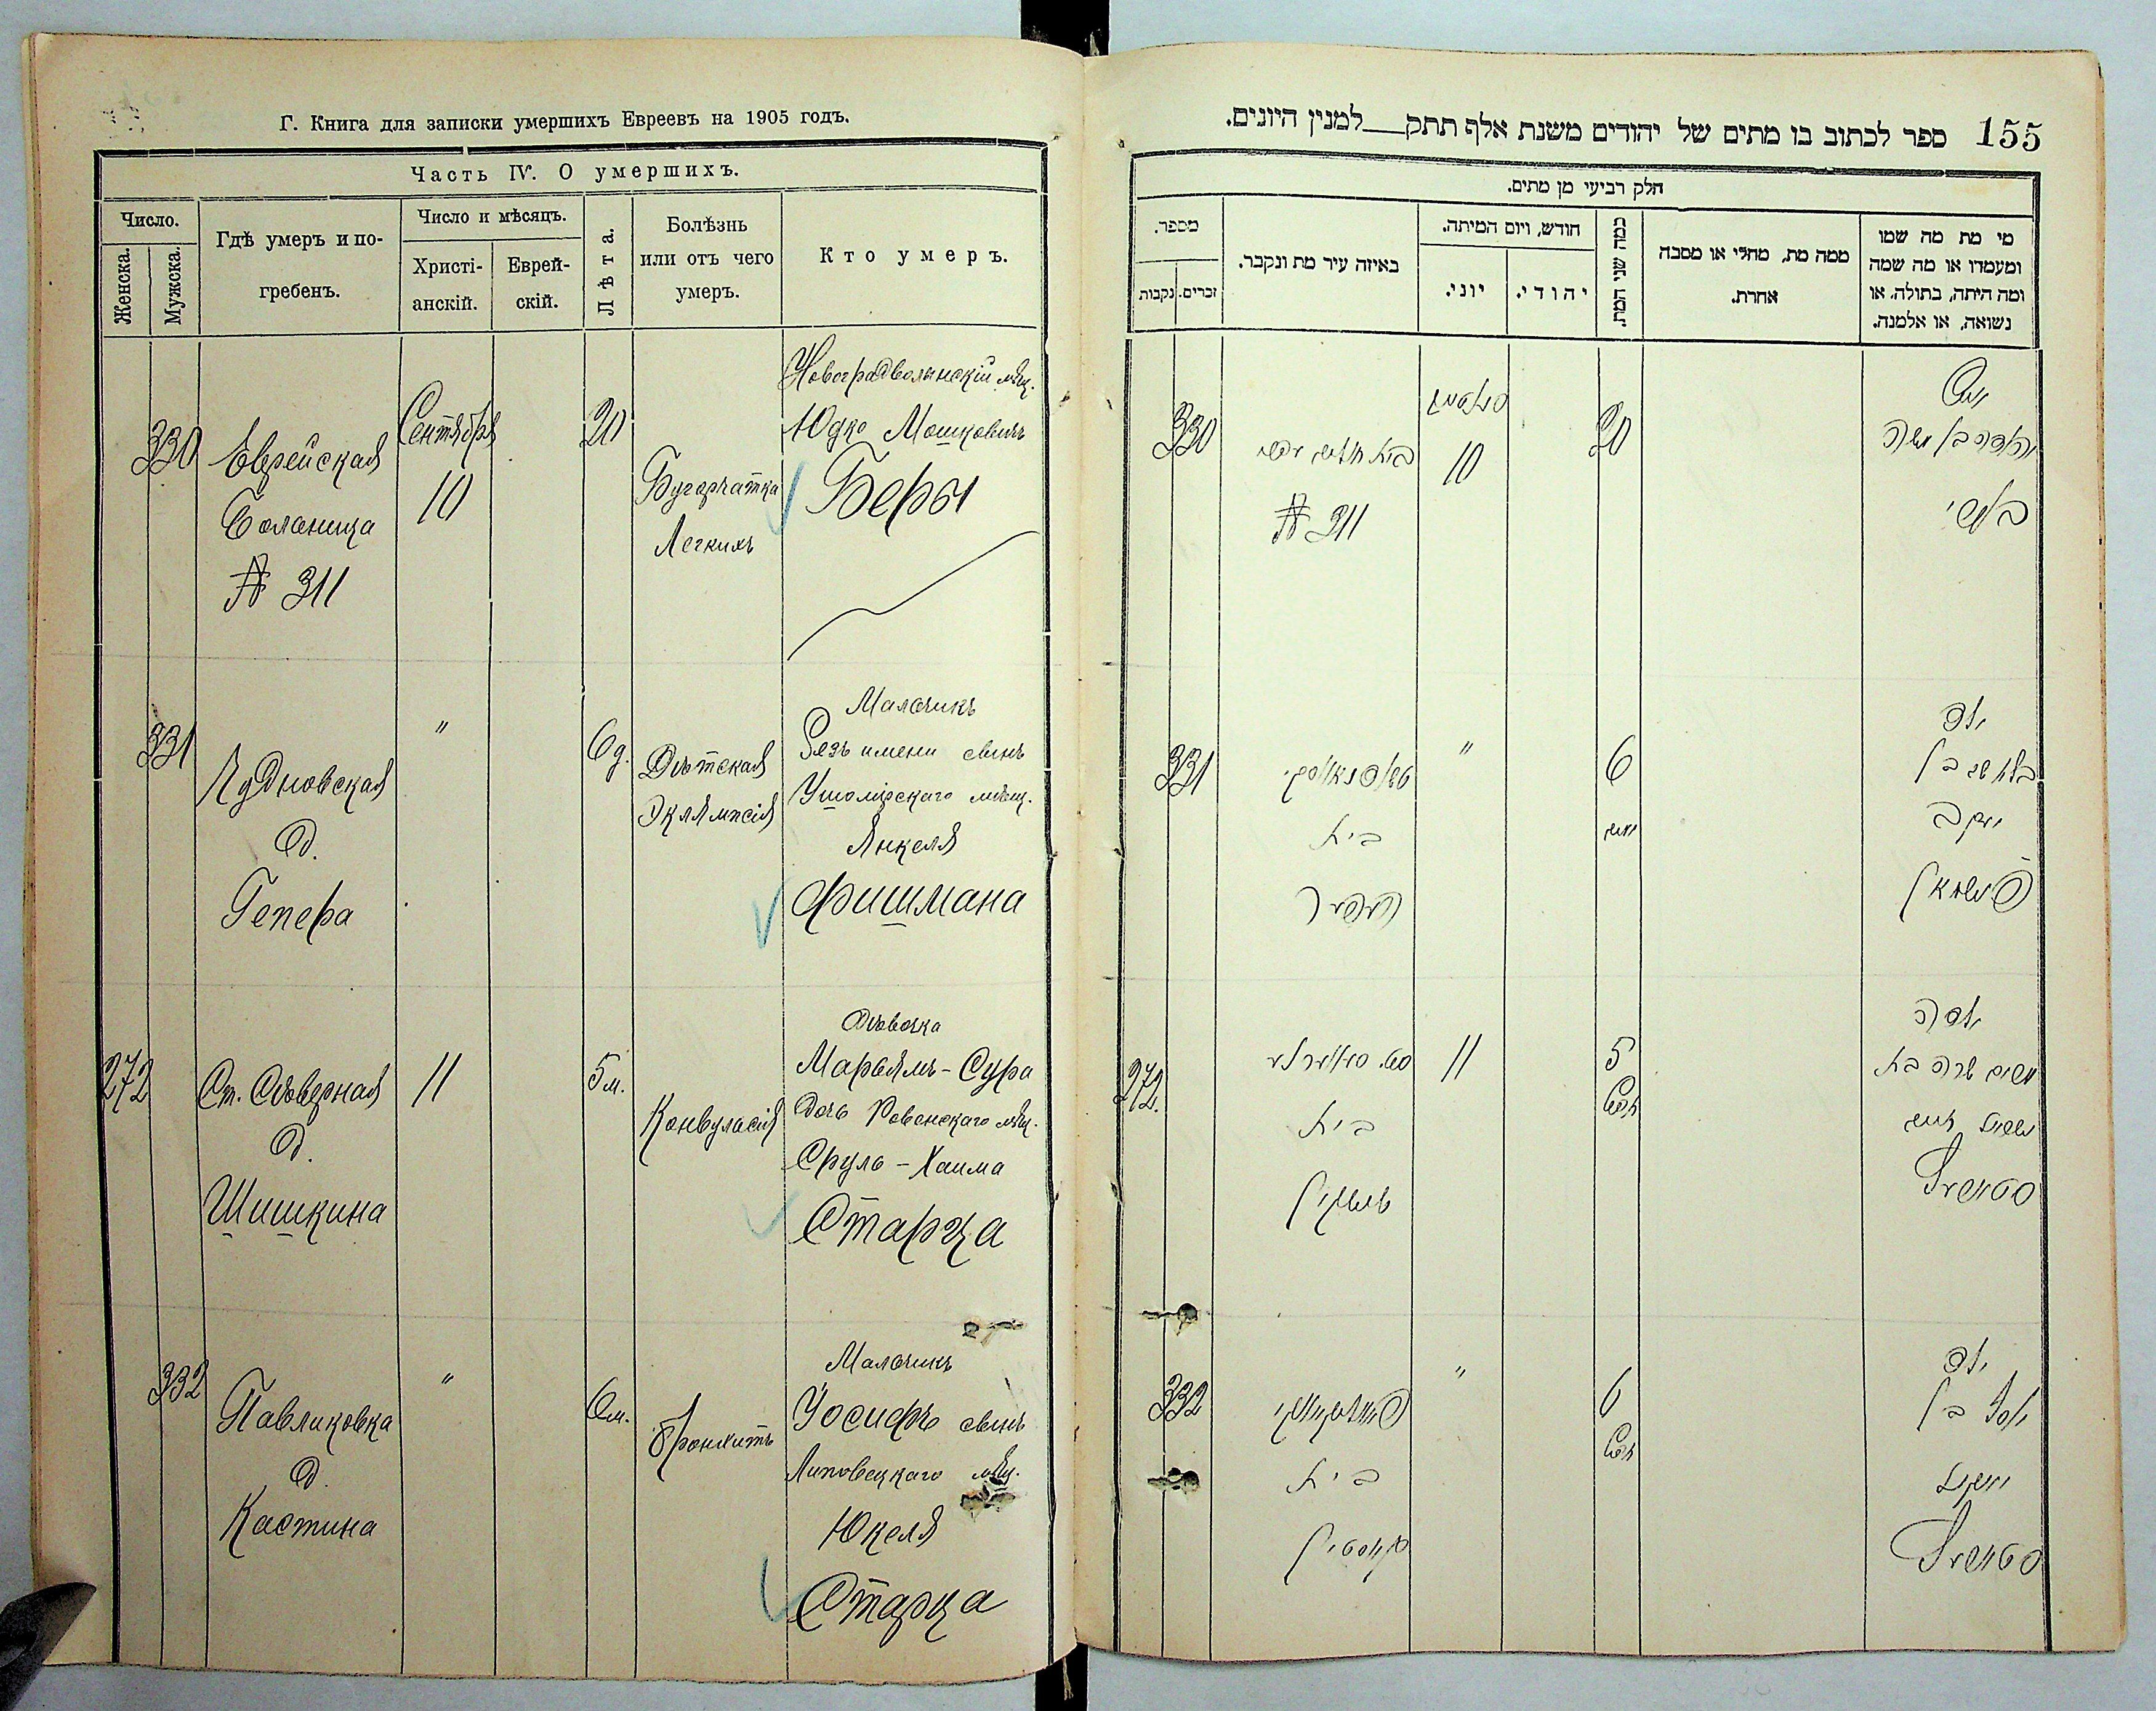 Г. Книга для записки умершихъ Евреевъ на 1905 годъ.
Часть IV. О умершихъ.
Число.
Женска.
Мужска.
Гдѣ умеръ и по-
гребенъ.
Число и мѣсяцъ.
Христі-
анскій.
Еврей-
скій.
Лѣта.
Болѣзнь
или отъ чего
умеръ.
Кто умеръ.
330
Еврейская
Болница
№ 311
Сентября
10
20
Бугорчатка
Легкихъ
Новоградволынскій мѣщ.
Юдко Мошковичъ
Беры
331
Чудновская
д.
Гепера
"
6 д.
Дѣтская
Эклямпсія
Мальчикъ
Безъ имени сынъ
Ушомірскаго мѣщ.
Янкеля
Фишмана
272
Ст. Сѣверная
д.
Шишкина
11
5 м.
Конвульсія
Дѣвочка
Марьямъ-Сура
дочь Ровенскаго мѣщ.
Сруль-Хаима
Старца
332
Павликовка
д.
Кастина
"
6 м.
Бронхитъ
Мальчикъ
Іосифъ сынъ
Липовецкаго мѣщ.
Юкеля
Старца
155 ספר לכתוב בו מתים של יהודים משנת אלף תתק למנין היונים.
חלק רביעי מן מתים.
מספר.
זכרים.
נקבות
באיזה עיר מת ונקבר.
חודש, ויום המיתה.
יוני.
יהודי.
כמה שני המת.
ממה מת, מחלי או מסבה
אחרת.
מי מת מה שמו
ומעמדו או מה שמה
ומה היתה, בתולה, או
נשואה, או אלמנה.
330
№ 311
10
20
331
בית
"
6
ילד
יעקב
פישמאן
272.
בית
שישקין
11
5
ילדה
332
בית
קאסטין
"
6
ילד
יוסף בן